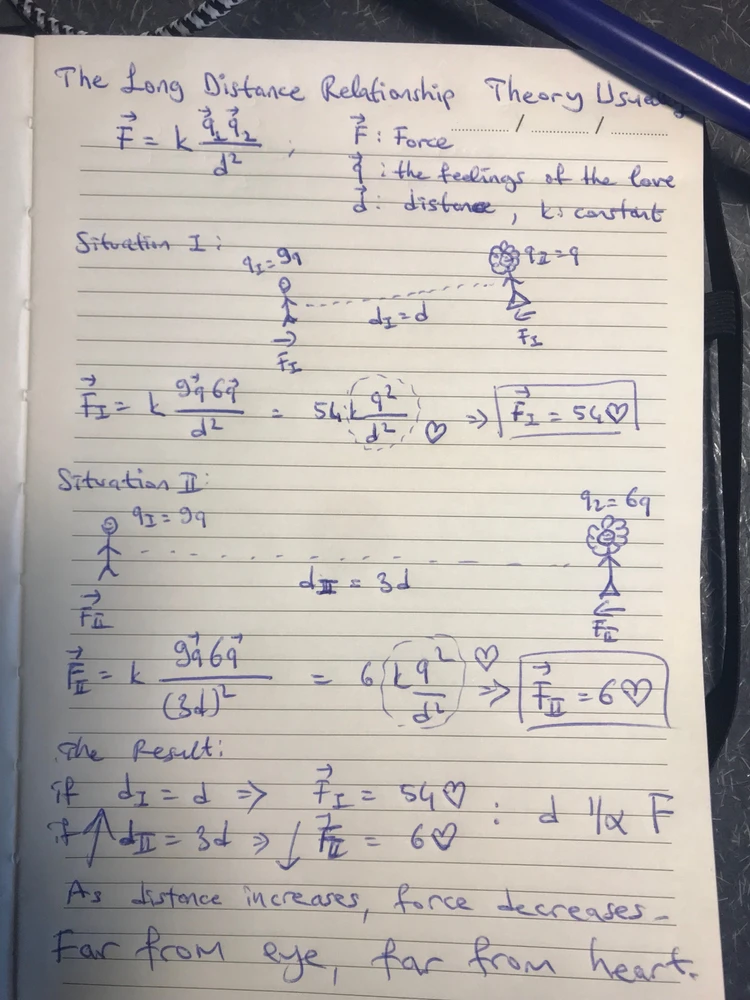 The Long Distance Relationship Theory Usually
F⃗ = k q⃗₁q⃗₂/d² ; F⃗ : Force
q⃗ : the feelings of the love
d⃗ : distance, k: constant
Situation I:
q_I = 9q q_II = q
d_I = d
F⃗_I F_I
F⃗_I = k 9q⃗6q⃗/d² = 54k q²/d² ♡ => F⃗_I = 54♡
Situation II:
q_I = 9q q₂ = 6q
d_II = 3d
F⃗_II F_II
F⃗_II = k 9q⃗6q⃗/(3d)² = 6 k q²/d² ♡ => F⃗_II = 6♡
The Result:
if d_I = d => F⃗_I = 54♡ : d 1/α F
if ↑ d_II = 3d => ↓ F⃗_II = 6♡
As distance increases, force decreases-
Far from eye, far from heart.